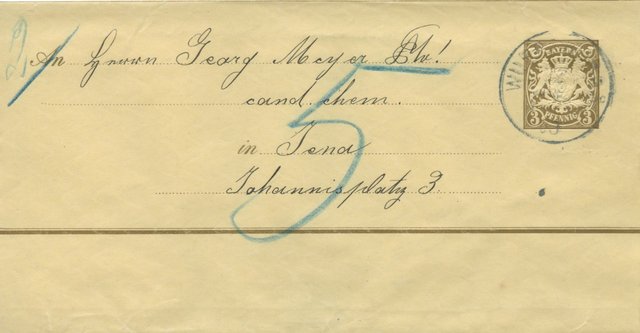 An Herrn Georg Meyer
cand. chem.
in Jena
Johannisplatz 3.
5
BAYERN
3 3
3 PFENNIG 3